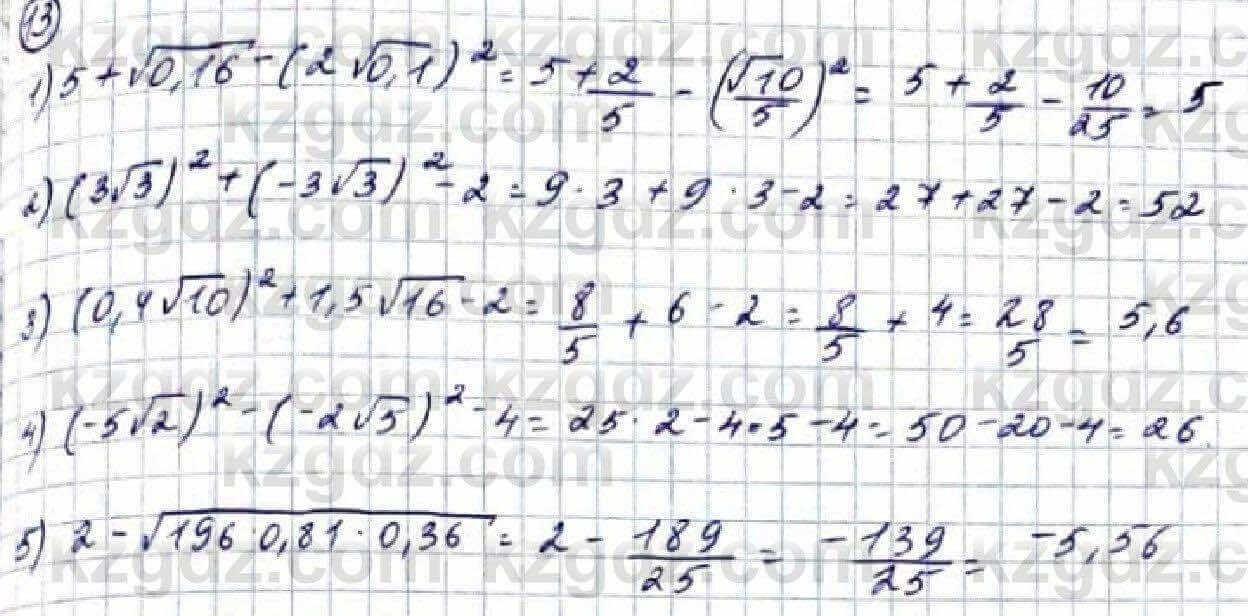 13
1) 5 + √0,16 - (2√0,1)² = 5 + 2/5 - (√10/5)² = 5 + 2/5 - 10/25 = 5
2) (3√3)² + (-3√3)² - 2 = 9 · 3 + 9 · 3 - 2 = 27 + 27 - 2 = 52
3) (0,4√10)² + 1,5√16 - 2 = 8/5 + 6 - 2 = 8/5 + 4 = 28/5 = 5,6
4) (-5√2)² - (-2√5)² - 4 = 25 · 2 - 4 · 5 - 4 = 50 - 20 - 4 = 26
5) 2 - √196 · 0,81 · 0,36 = 2 - 189/25 = -139/25 = -5,56
kzgdz.com